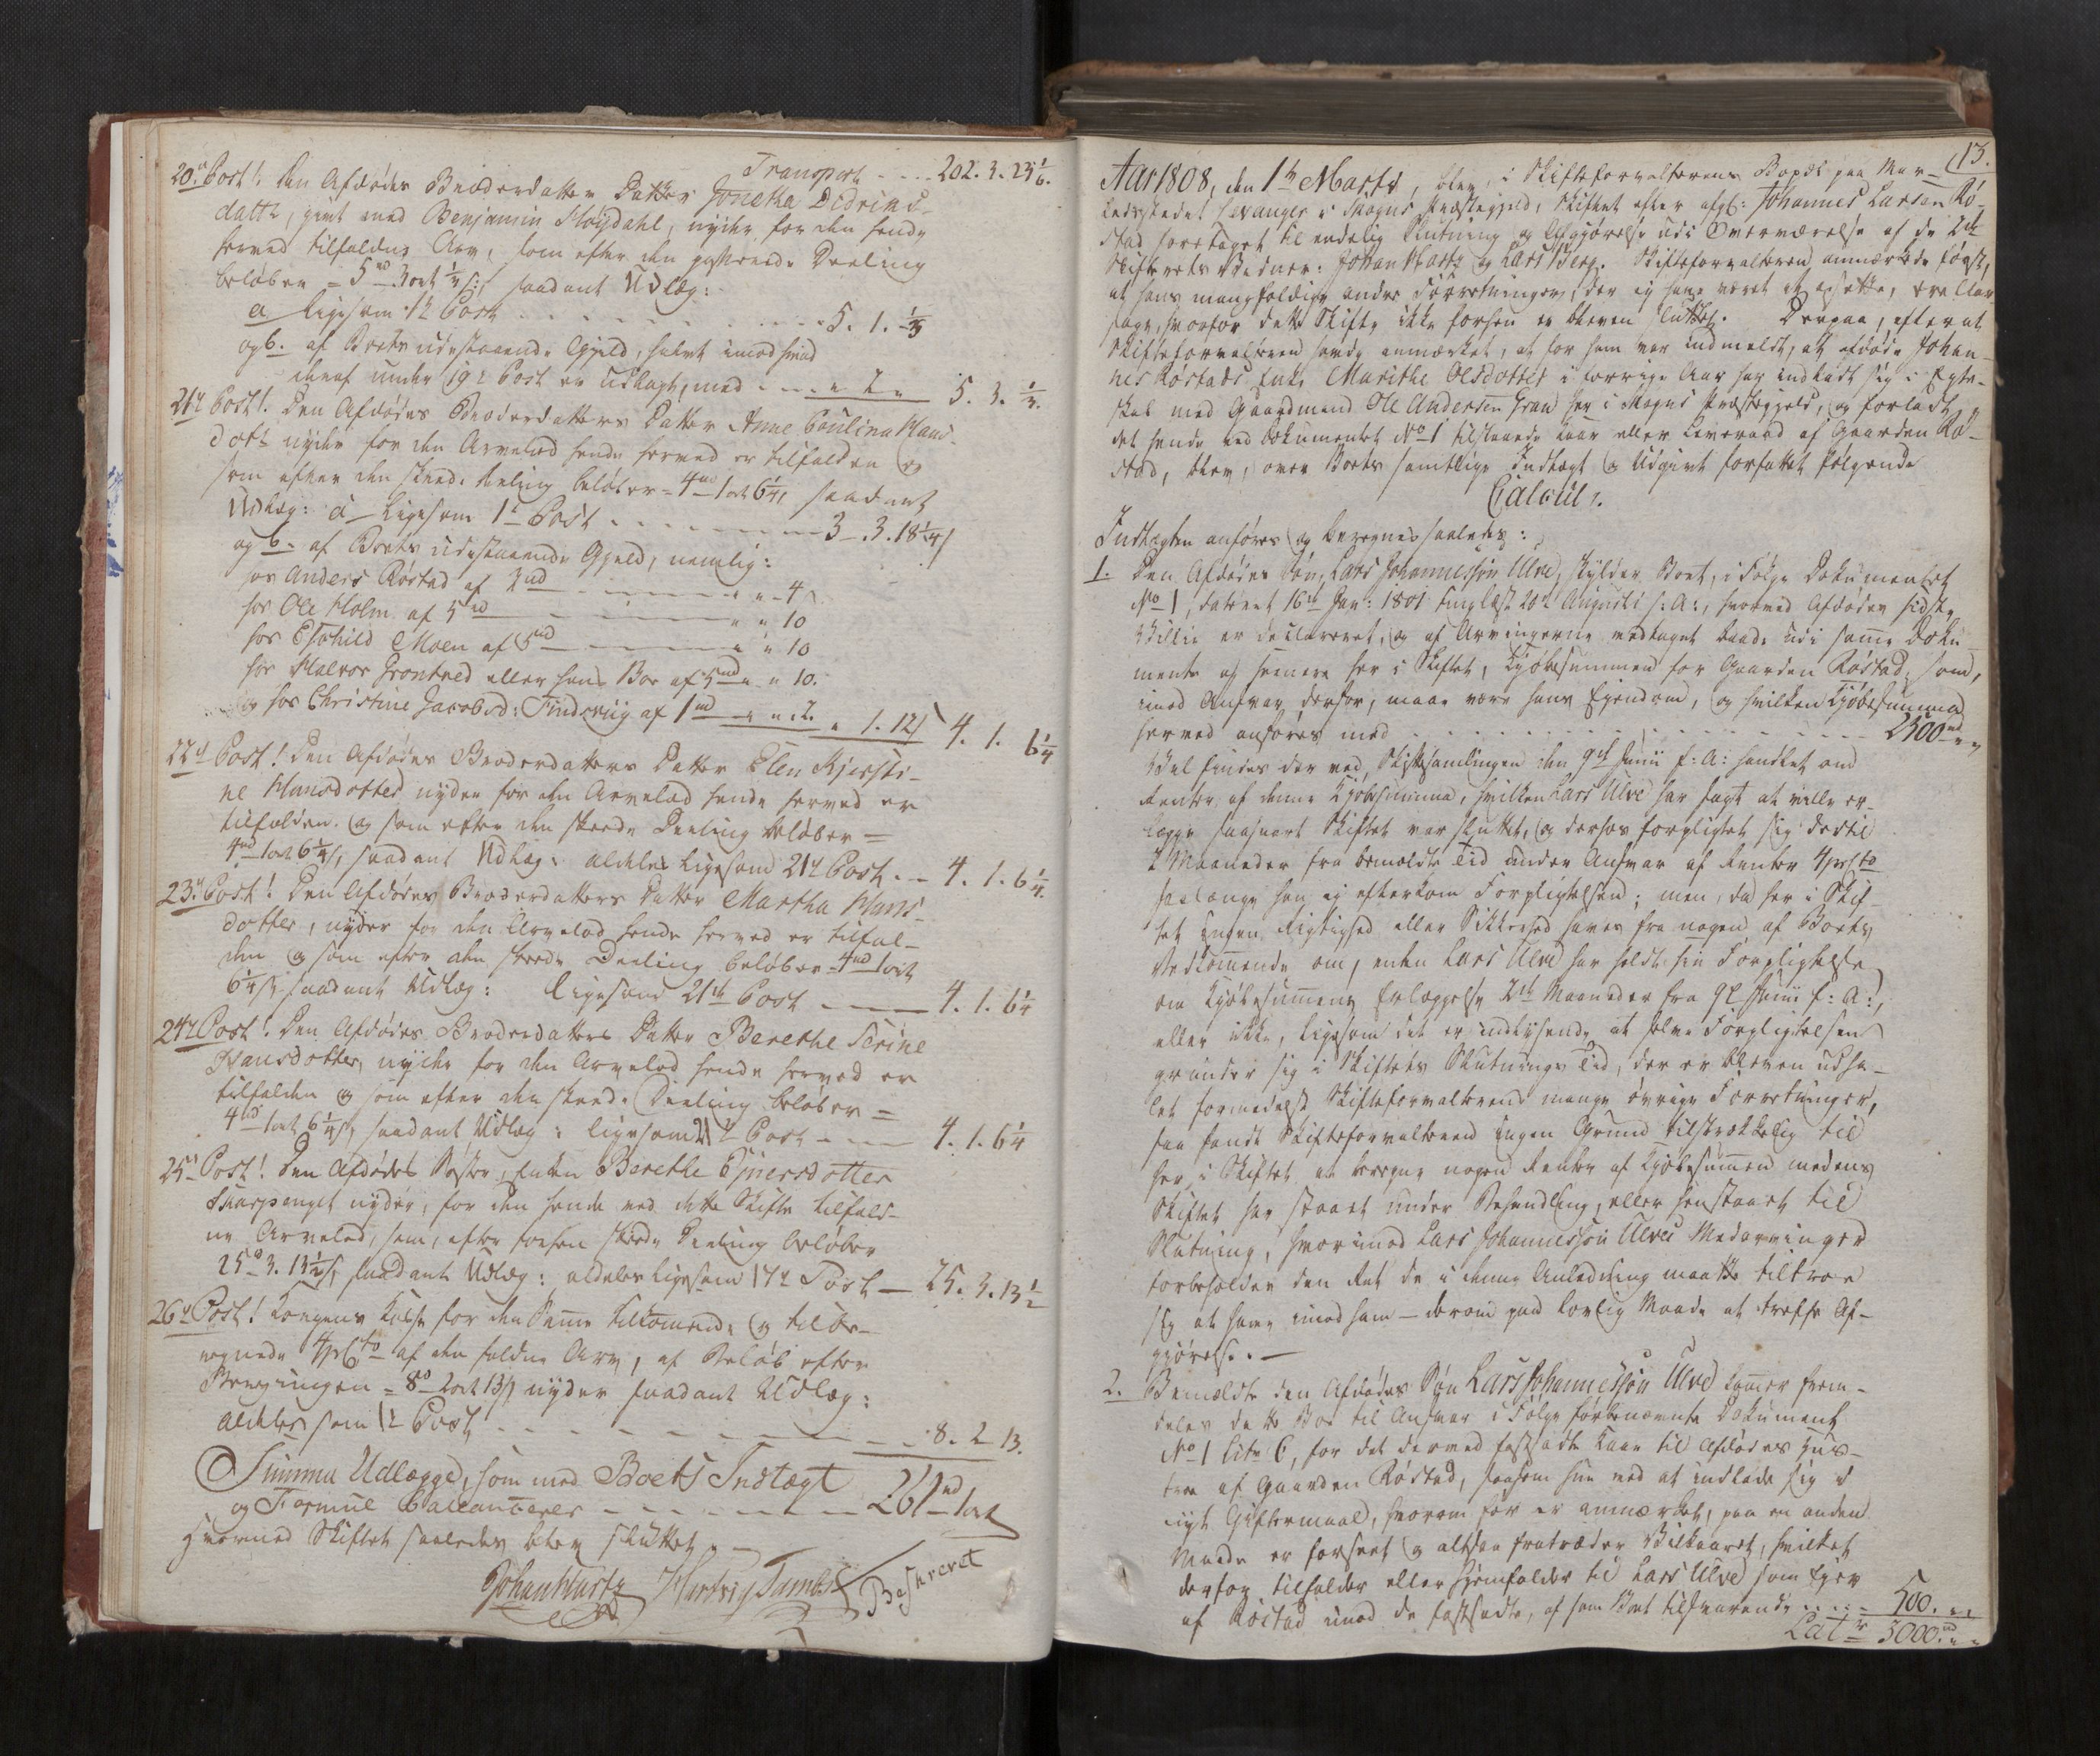 Transport - - - 202. 3. 23 1/6.
20de Post! Den Afdødes Broderdatters Datter Jonetha Didrics-
datter, givt med Benjamin Høydahl, nyder for den hende
herved tilfaldne Arv, som efter den passerede Deeling
beløber = 5 rd 3 ort 1/3 s: saadant Udlæg:
a ligesom 1te Post - - - - 5. 1. 1/3
og b. af Boets udestaaende Gjeld, halvt imod hvad
deraf under 19de Post er udlagt, med - - - " 2 " 5. 3. 1/3.
21de Post! Den Afdødes Broderdatters Datter Anne Paulina Hans-
dotr nyder for den Arvelod hende herved er tilfalden og
som efter den skeede Deling beløber = 4 rd 1 ort 6 1/4 s, saadant
Udlæg: a ligesom 1te Post - - - - 3 - 3. 18 1/4 s
og b. af Boets udestaaende Gjeld, nemlig:
hos Anders Røstad af 2 rd - - - " " 4
hos Ole Holm af 5 rd - - - " " 10
hos Eskild Moen af 5 rd - - - " " 10
hos Halvor Grontved eller hans Boe af 5 rd " " 10.
og hos Christine Jacobsd: Findsviig af 1 rd " " 2. " 1. 12 s 4. 1. 6 1/4
22de Post! Den Afdødes Broderdatters Datter Elen Kjersti-
ne Hansdotter nyder for den Arvelod hende herved er
tilfalden og som efter den skeede Deeling beløber =
4 rd 1 ort 6 1/4 s, saadant Udlæg: aldeles ligesom 21de Post - - 4. 1. 6 1/4.
23de Post! Den Afdødes Broderdatters Datter Martha Hans-
dotter, nyder for den Arvelod hende herved er tilfal-
den og som efter den skeede Deeling beløber = 4 rd 1 ort
6 1/4 s saadant Udlæg: ligesom 21de Post - - 4. 1. 6 1/4
24de Post! Den Afdødes Broderdatters Datter Berethe Serine
Hansdotter, nyder for den Arvelod hende herved er
tilfalden og som efter den skeede Deeling beløber =
4 rd 1 ort 6 1/4 s, saadant Udlæg: ligesom 21de Post - - 4. 1. 6 1/4
25de Post! Den Afdødes Søster, Enken Berethe Ejnersdotter
nyder, for den hende ved dette Skifte tilfald-
ne Arvelod, som, efter forhen skeede Deeling beløber
25 rd 3. 13 1/2 s, saadant Udlæg: aldeles ligesom 17de Post - 25. 3. 13 1/2
26de Post! Kongens Kasse for den Samme tilkommende og tilbe-
regnede 4 prCto af den faldne Arv, af Beløb efter
Beregningen = 8 rd 2 ort 13 s nyder saadant Udlæg:
aldeles som 1te Post - - - - 8. 2 13.
Summa Udlægget, som med Boets Indtægt
og Formue ballancerer - - - 261 rd 1 ort
Hvormed Skiftet saaledes blev sluttet. -
Johan Hartz Hartvig Tambs Beskrevet
13.
Aar 1808, den 1te Marts, blev, i Skifteforvalterens Bopæl paa Mar-
kedsstedet Levanger i Skogns Præstegield, Skiftet efter afg: Johannes Larsen Rø-
stad foretaget til endelig Slutning og Afgjørelse udi Overværelse af de 2de
Skifterets Vidner: Johan Hartz og Lars Berg. Skifteforvalteren anmærkede først,
at hans mangfoldige andre Forretninger, der ej have været at opsætte, ere Aar-
sage, hvorfor dette Skifte ikke forhen er bleven sluttet. Derpaa, efterat
Skifteforvalteren havde anmærket, at for ham var indmeldt, at afdøde Johan-
nes Røstads Enke Marithe Olsdotter i forrige Aar har indladt sig i Egte-
skab med Gaardmand Ole Andersen Gran her i Skogns Præstegjeld, og forladt
det hende ved Dokumentet No 1 tilstaaede Kaar eller Leveraad af Gaarden Rø-
stad, blev, over Boets samtlige Indtægt og Udgivt forfattet følgende
Calcul.
Indtægten anføres og beregnes saaledes:
1. Den Afdødes Søn, Lars Johannesson Ulve, skylder Boet, i Følge Dokumentet
No 1, dateret 16de Jan: 1801 tinglæst 20de Augusti s: A:, hvorved Afdødes sidste
Villie er declareret, og af Arvingerne vedtaget baade udi samme Doku-
mente og senere her i Skiftet, Kjøbesummen for Gaarden Røstad, som,
imod Ansvar derfor, maae være hans Ejendom, og hvilken Kjøbesumma
herved anføres med - - - - 2500 rd " "
Vel findes der ved Skiftesamlingen den 9de Junii f: A: handlet om
Renter af denne Kjøbesumma, hvilken Lars Ulve har sagt at ville er-
lægge saasnart Skiftet var sluttet, og derhos forpligtet sig dertil
2 Maaneder fra bemeldte Tid under Ansvar af Renter 4 prCto
saalænge han ej efterkom Forpligtelsen; men, da her i Skif-
tet ingen Rigtighed eller Sikkerhed haves fra nogen af Boets
Vedkommende om, enten Lars Ulve har holdt sin Forpligtelse
om Kjøbesummens Erlæggelse 2de Maaneder fra 9de Junii f: A:,
eller ikke, ligesom det er indlysende, at selve Forpligtelsen
grunder sig i Skiftets Slutnings Tid, der er bleven udha-
let formedelst Skifteforvalterens mange øvrige Forretninger,
saa fandt Skifteforvalteren ingen Grund tilstrækkelig til
her i Skiftet at beregne nogen Renter af Kjøbesummen medens
Skiftet har staaet under Behandling, eller henstaaet til
Slutning, hvorimod Lars Johannesson Ulves Medarvinger
forbeholdes den Ret de i denne Anledning maatte tiltroe
sig at have imod ham - derom paa lovlig Maade at træffe Af-
gjørelse. -
2. Bemeldte den Afdødes Søn Lars Johannesson Ulve kommer frem-
deles dette Boe til Ansvar i Følge forbenævnte Dokument
No 1 Litr C, for det derved fastsadte Kaar til Afdødes Hus-
troe af Gaarden Røstad, saasom hun ved at indlade sig i
nyt Giftermaal, hvorom før er anmærket, paa en anden
Maade er forseet og altsaa fratræder Vilkaaret, hvilket
derfor tilfalder eller hjemfalder til Lars Ulve som Ejer
af Røstad imod de fastsadte, af ham Boet tilsvarende - - - 500. " "
Latr 3000 rd " "